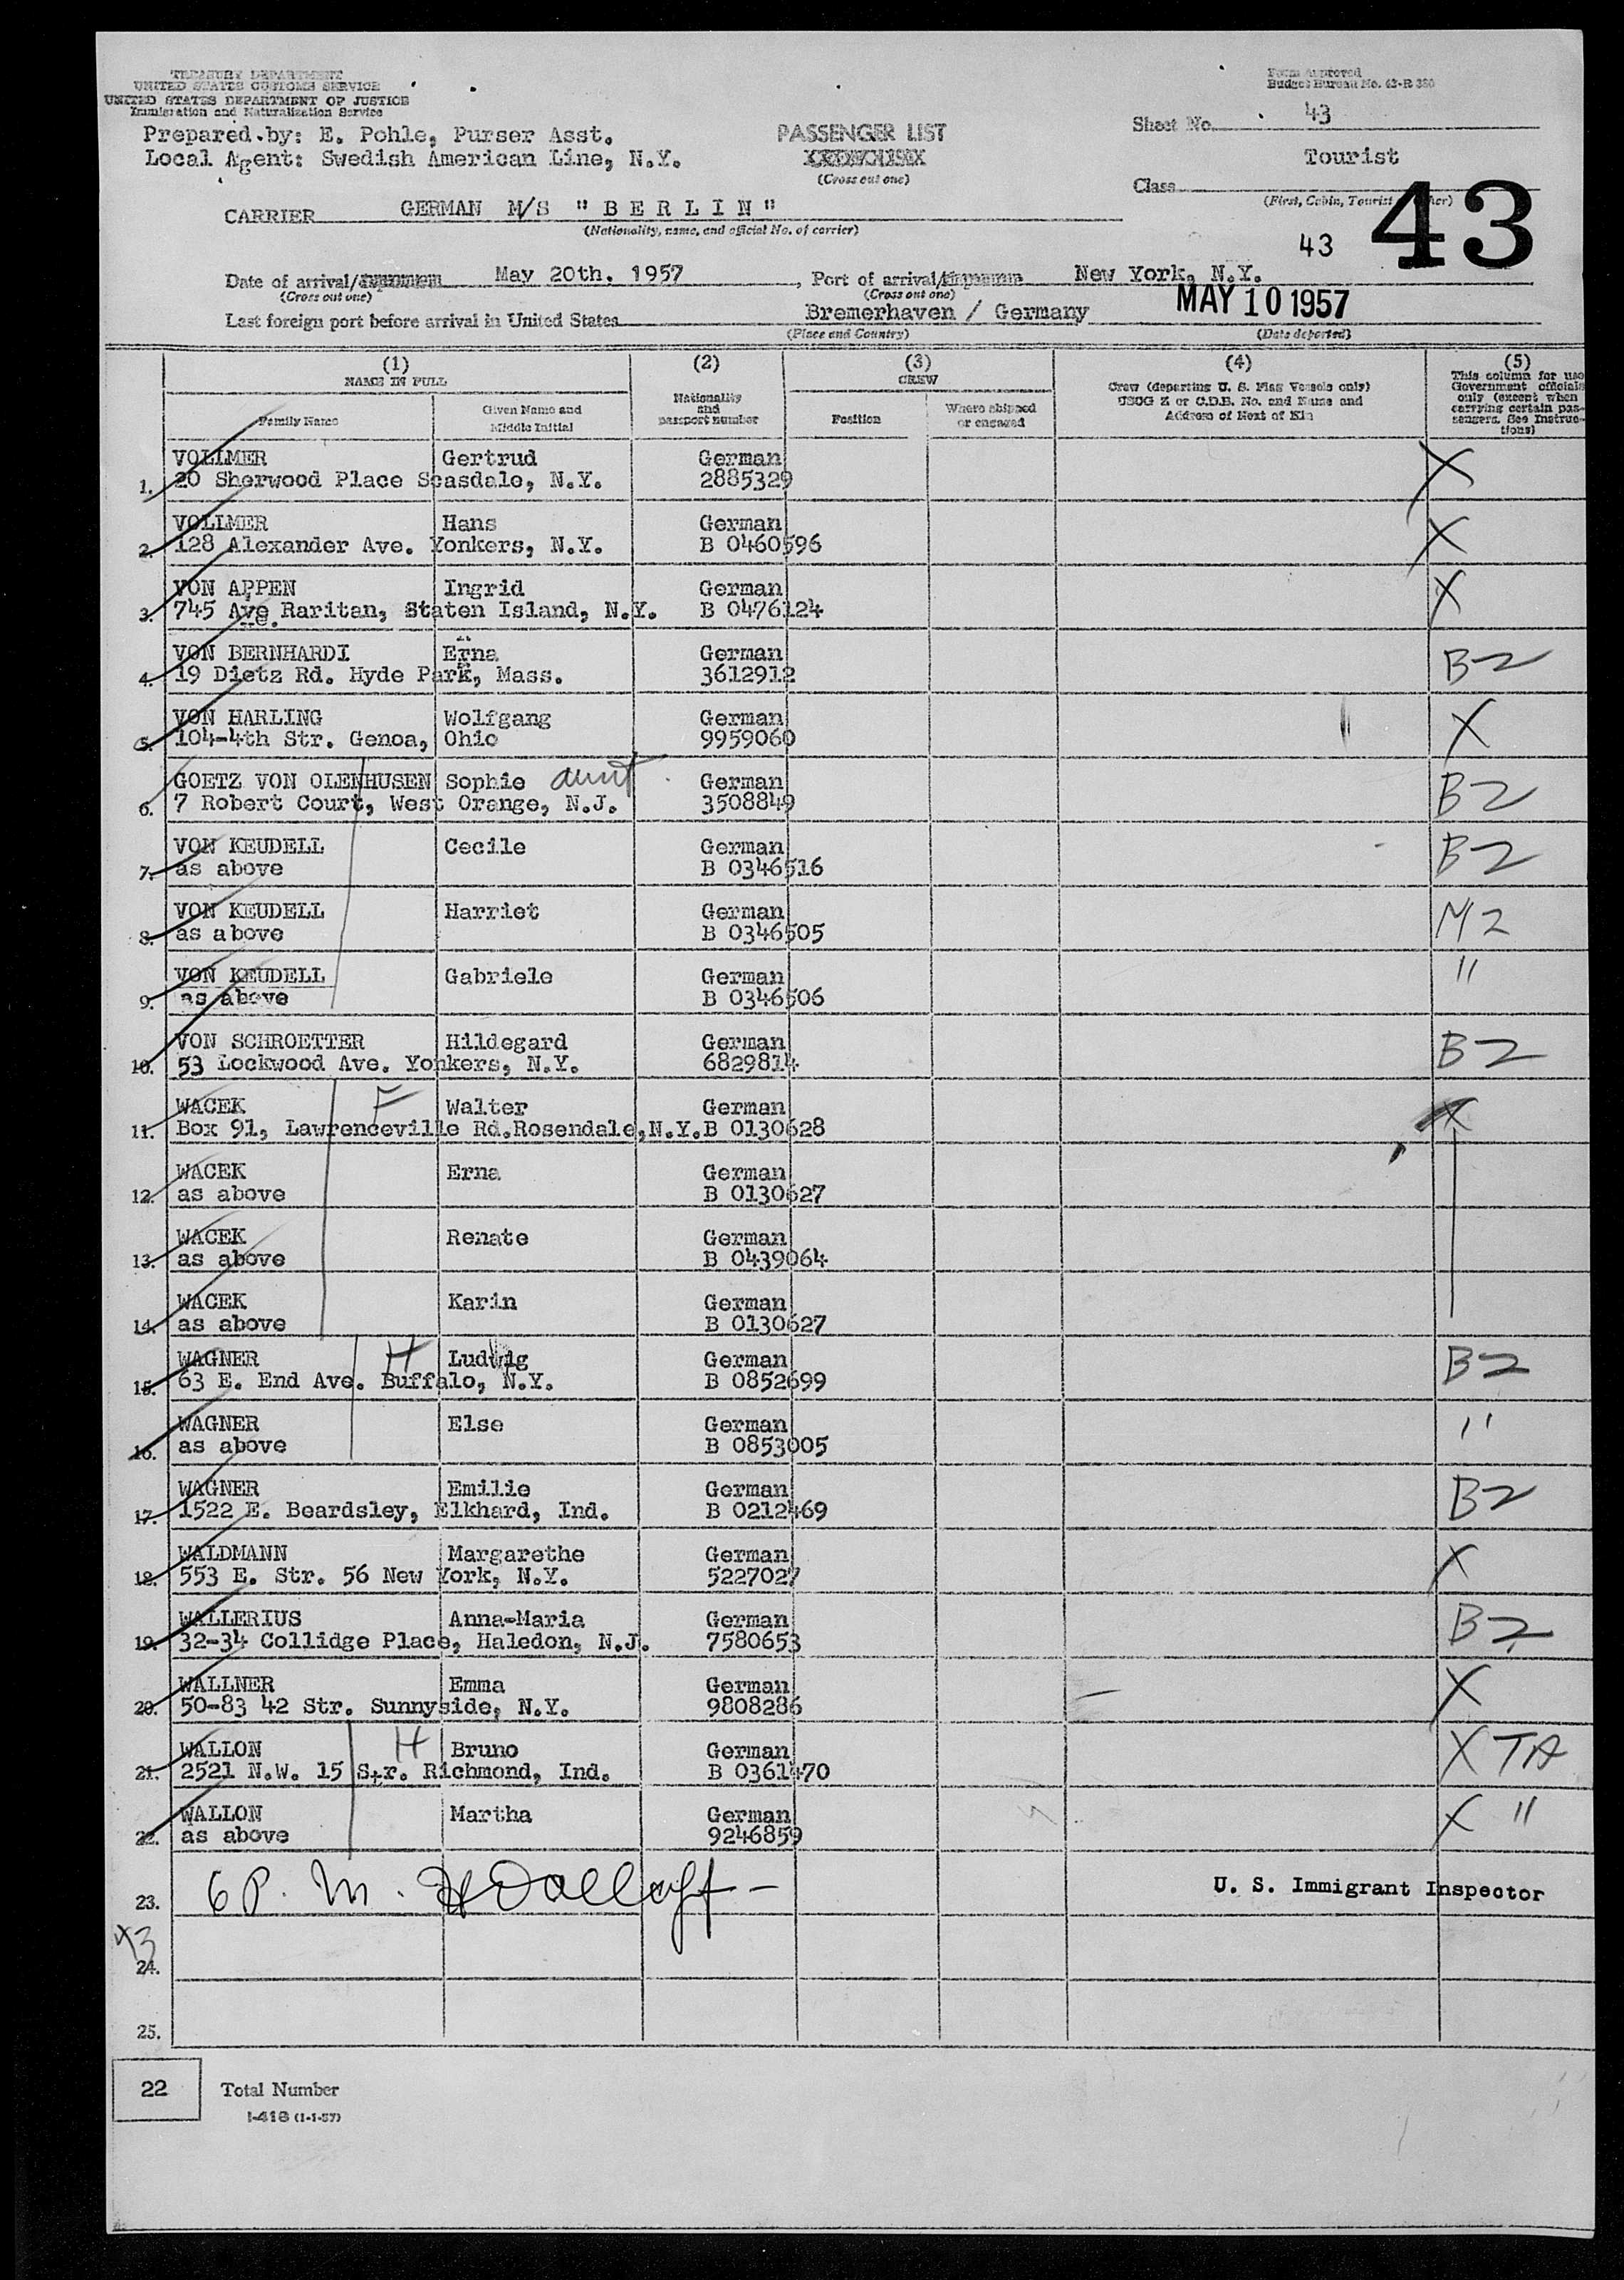 TREASURY DEPARTMENT
UNITED STATES CUSTOMS SERVICE
UNITED STATES DEPARTMENT OF JUSTICE
Immigration and Naturalization Service
Form Approved
Budget Bureau No. 43-R 380
Prepared by: E. Pohle, Purser Asst.
Local Agent: Swedish American Line, N.Y.
PASSENGER LIST
(Cross out one)
Sheet No. 43
Class Tourist
(First, Cabin, Tourist
43
CARRIER GERMAN M/S "BERLIN"
(Nationality, name, and official No. of carrier)
43
Date of arrival/ May 20th. 1957, Port of arrival/ New York, N.Y.
(Cross out one) (Cross out one)
MAY 10 1957
Last foreign port before arrival in United States Bremerhaven / Germany
(Place and Country) (Date departed)
(1) NAME IN FULL
Family Name
Given Name and Middle Initial
(2) Nationality and passport number
(3) CREW
Position
Where shipped or engaged
(4) Crew (departing U. S. Flag Vessels only)
USCG Z or C.D.B. No. and Name and
Address of Next of Kin
(5) This column for use
Government officials
only (except when
carrying certain pas-
sengers. See Instruc-
tions)
1. VOLLMER Gertrud German X
20 Sherwood Place Scasdale, N.Y. 2885329
2. VOLLMER Hans German X
128 Alexander Ave. Yonkers, N.Y. B 0460596
3. VON APPEN Ingrid German X
745 Ave Raritan, Staten Island, N.Y. B 0476124
4. VON BERNHARDI Erna German B2
19 Dietz Rd. Hyde Park, Mass. 3612912
5. VON HARLING Wolfgang German X
104-4th Str. Genoa, Ohio 9959060
6. GOETZ VON OLENHUSEN Sophie aunt German B2
7 Robert Court, West Orange, N.J. 3508849
7. VON KEUDELL Cecile German B2
as above B 0346516
8. VON KEUDELL Harriet German M2
as above B 0346505
9. VON KEUDELL Gabriele German "
as above B 0346506
10. VON SCHROETTER Hildegard German B2
53 Lockwood Ave. Yonkers, N.Y. 6829814
11. WACEK F Walter German X
Box 91, Lawrenceville Rd.Rosendale,N.Y. B 0130628
12. WACEK Erna German
as above B 0130627
13. WACEK Renate German
as above B 0439064
14. WACEK Karin German
as above B 0130627
15. WAGNER H Ludwig German B2
63 E. End Ave. Buffalo, N.Y. B 0852699
16. WAGNER Else German "
as above B 0853005
17. WAGNER Emilie German B2
1522 E. Beardsley, Elkhard, Ind. B 0212469
18. WALDMANN Margarethe German X
553 E. Str. 56 New York, N.Y. 5227027
19. WALLERIUS Anna-Maria German B2
32-34 Collidge Place, Haledon, N.J. 7580653
20. WALLNER Emma German X
50-83 42 Str. Sunnyside, N.Y. 9808286
21. WALLON H Bruno German X TA
2521 N.W. 15 Str. Richmond, Ind. B 0361470
22. WALLON Martha German X "
as above 9246859
23. 6 P. M. U. S. Immigrant Inspector
43
24.
25.
22 Total Number
I-418 (1-1-57)